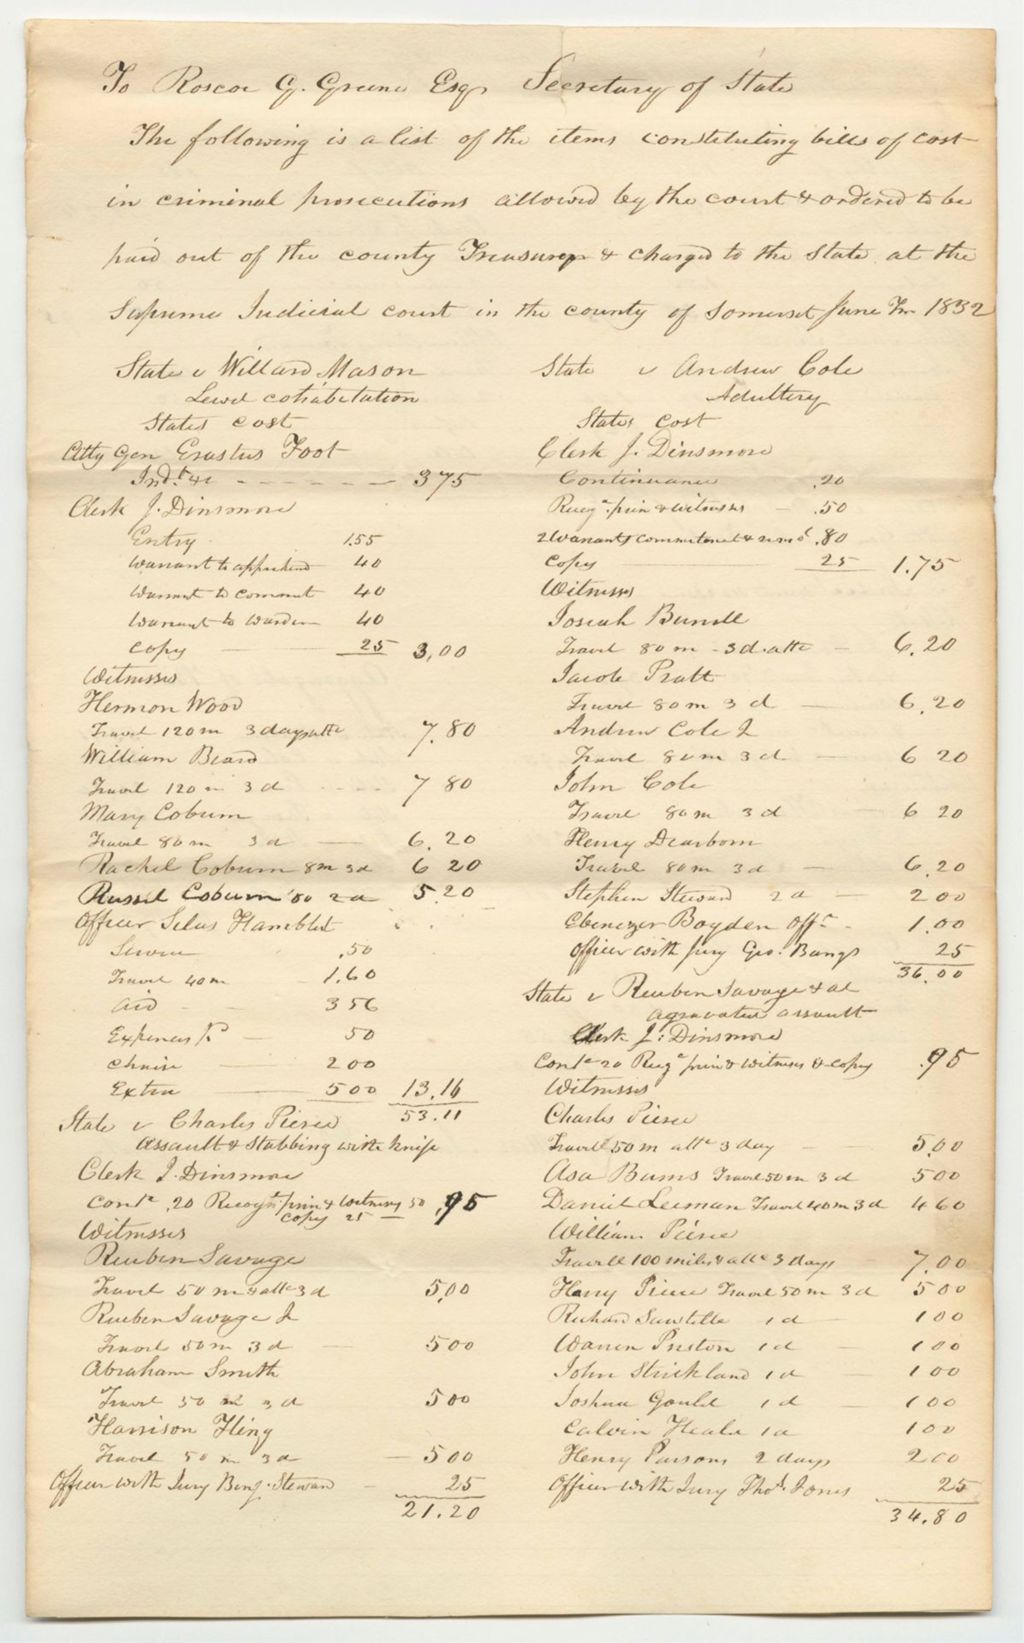 To Roscoe G. Greene Esqr Secretary of State
The following is a list of the items constituting bills of cost
in criminal prosecutions allowed by the court & ordered to be
paid out of the county Treasury & charged to the State at the
Supreme Judicial court in the county of Somerset June Tm 1832
State v Willard Mason
Lewd cohabitation
States cost
Atty Gen Erastus Foot
Indt &c - - - - - - 3 75
Clerk J. Dinsmore
Entry 1.55
Warrant to apprehend 40
Warrant to commit 40
Warrant to warden 40
Copy 25 3,00
Witnesses
Hermon Wood
Travel 120 m 3 days atte 7.80
William Beard
Travel 120 m 3 d 7 80
Mary Coburn
Travel 80 m 3 d 6.20
Rachel Coburn 8m 3d 6 20
Russel Coburn 80 2 d 5.20
Officer Silas Hamblet
Service .50
Travel 40 m 1.60
Aid 3 56
Expenses P. 50
Chaise 2 00
Extra 5 00 13.16
53.11
State v Charles Pierce
Assault & Stabbing with knife
Clerk J. Dinsmore
Conte .20 Recogn prin & witness 50 .95
Copy 25
Witnesses
Reuben Savage
Travel 50 m & atte 3 d 5.00
Reuben Savage J
Travel 50 m 3 d 5 00
Abraham Smith
Travel 50 m 3 d 5 00
Harrison Fling
Travel 50 m 3 d 5 00
Officer with Jury Benj. Steward 25
21.20
State v Andrew Cole
Adultery
States Cost
Clerk J. Dinsmore
Continuance .20
Recogn prin & witnesses .50
2 Warants commitment & remd .80
Copy 25 1.75
Witnesses
Josiah Burrill
Travel 80 m - 3 d. atte 6.20
Jacob Pratt
Travel 80 m 3 d 6.20
Andrew Cole J
Travel 80 m 3 d 6 20
John Cole
Travel 80 m 3 d 6 20
Henry Dearborn
Travel 80 m 3 d 6.20
Stephen Steward 2 d 2 00
Ebenezer Boyden Offr 1.00
Officer with jury Geo. Bangs 25
36.00
State v Reuben Savage & al
agravated assault
Clerk J. Dinsmore
Conte 20 Recg prin & witness & copy .95
Witnesses
Charles Pierce
Travel 50 m atte 3 day 5.00
Asa Burns Travel 50 m 3 d 5 00
Daniel Leeman Travel 40 m 3 d 4 60
William Pierce
Travell 100 miles & atte 3 days 7.00
Henry Pierce Travel 50 m 3 d 5 00
Richard Sawtelle 1 d 1 00
Warren Preston 1 d 1 00
John Strickland 1 d 1 00
Joshua Gould 1 d 1 00
Calvin Heald 1 d 1 00
Henry Parsons 2 days 2 00
Officer with Jury Thos. Jones 25
34.80